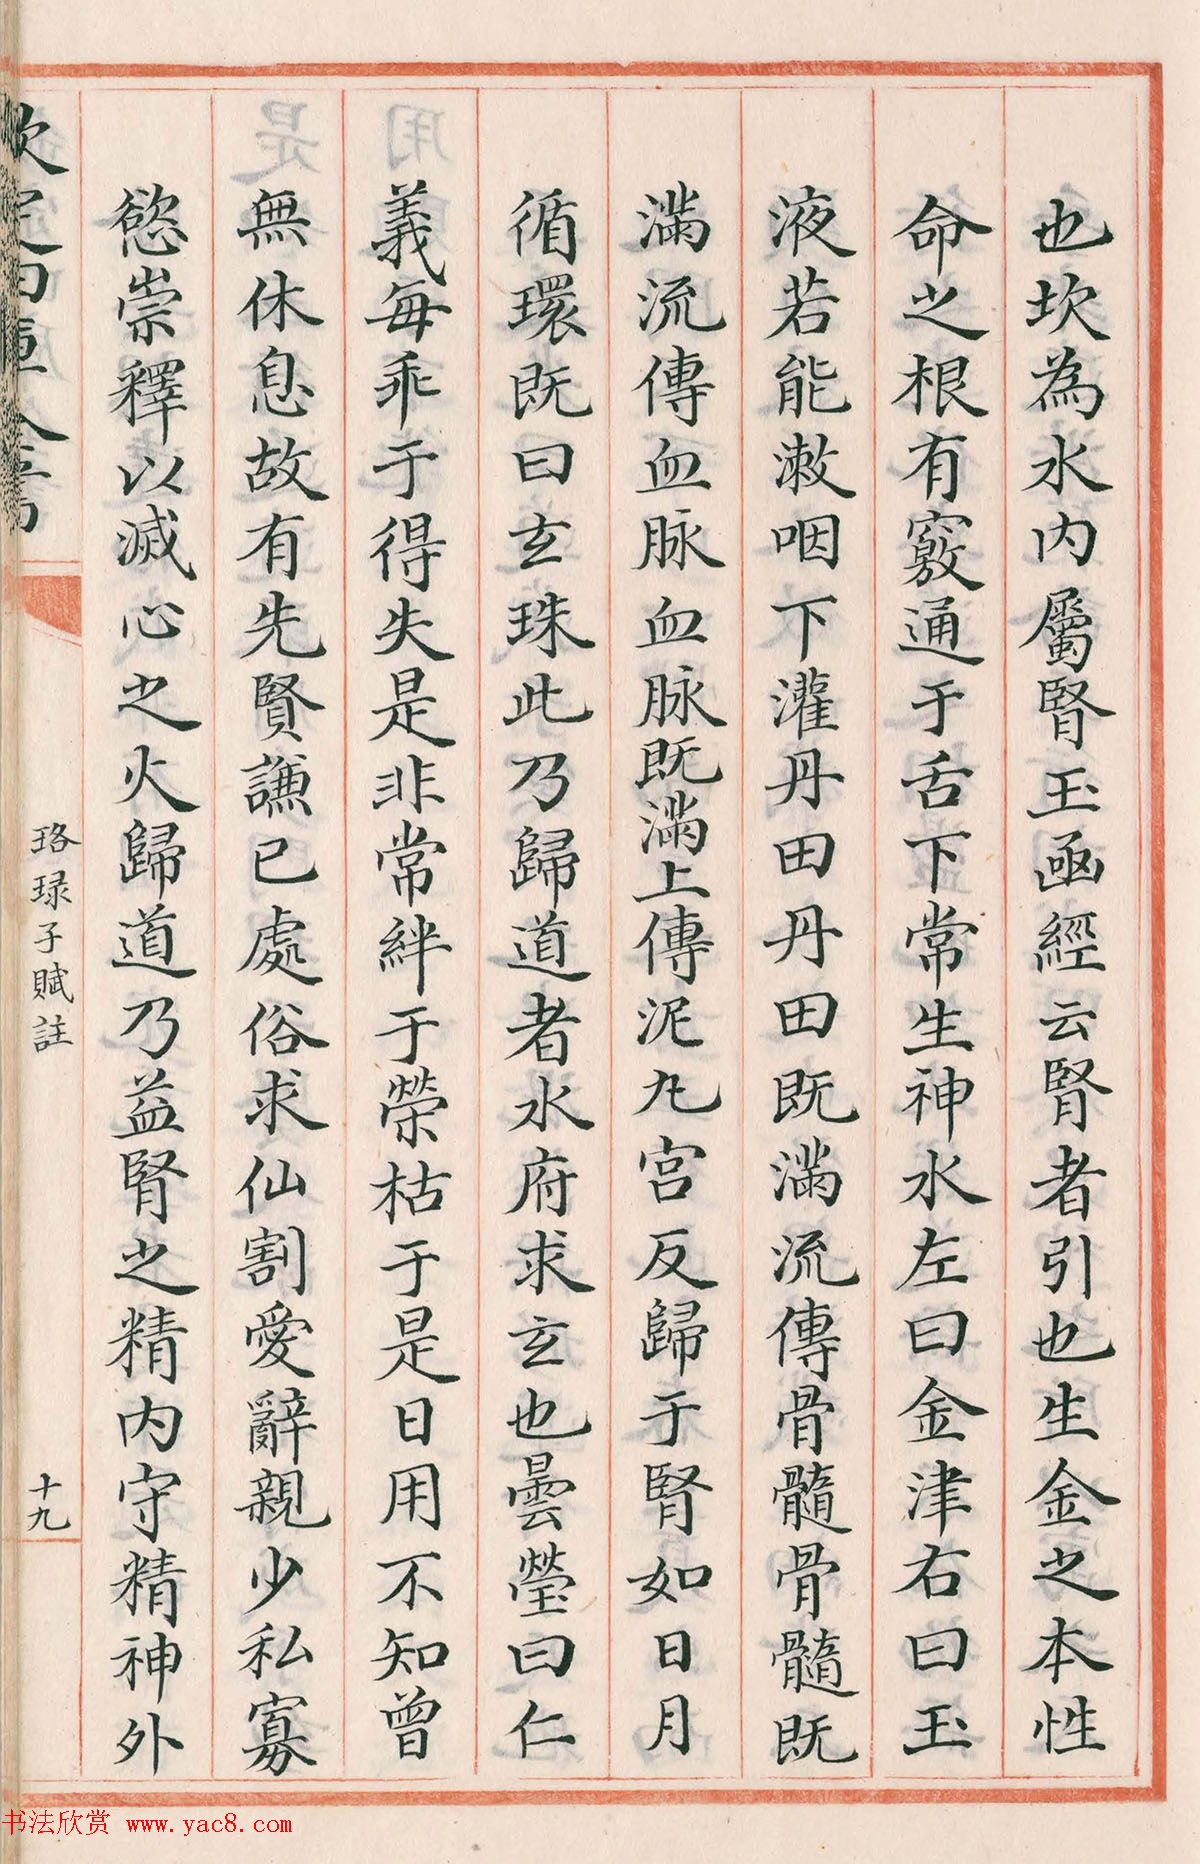 也坎為水内屬腎玉函經云腎者引也生金之本性
命之根有竅通于舌下常生神水左曰金津右曰玉
液若能漱咽下灌丹田丹田既滿流傳骨髓骨髓既
滿流傳血脉血脉既滿上傳泥丸宫反歸于腎如日月
循環既曰玄珠此乃歸道者水府求玄也曇瑩曰仁
義每乖于得失是非常絆于榮枯于是日用不知曾
無休息故有先賢謙已處俗求仙割愛辭親少私寡
慾崇釋以滅心之火歸道乃益腎之精内守精神外
欽定四庫全書
珞琭子賦註
十九
书法欣赏 www.yac8.com